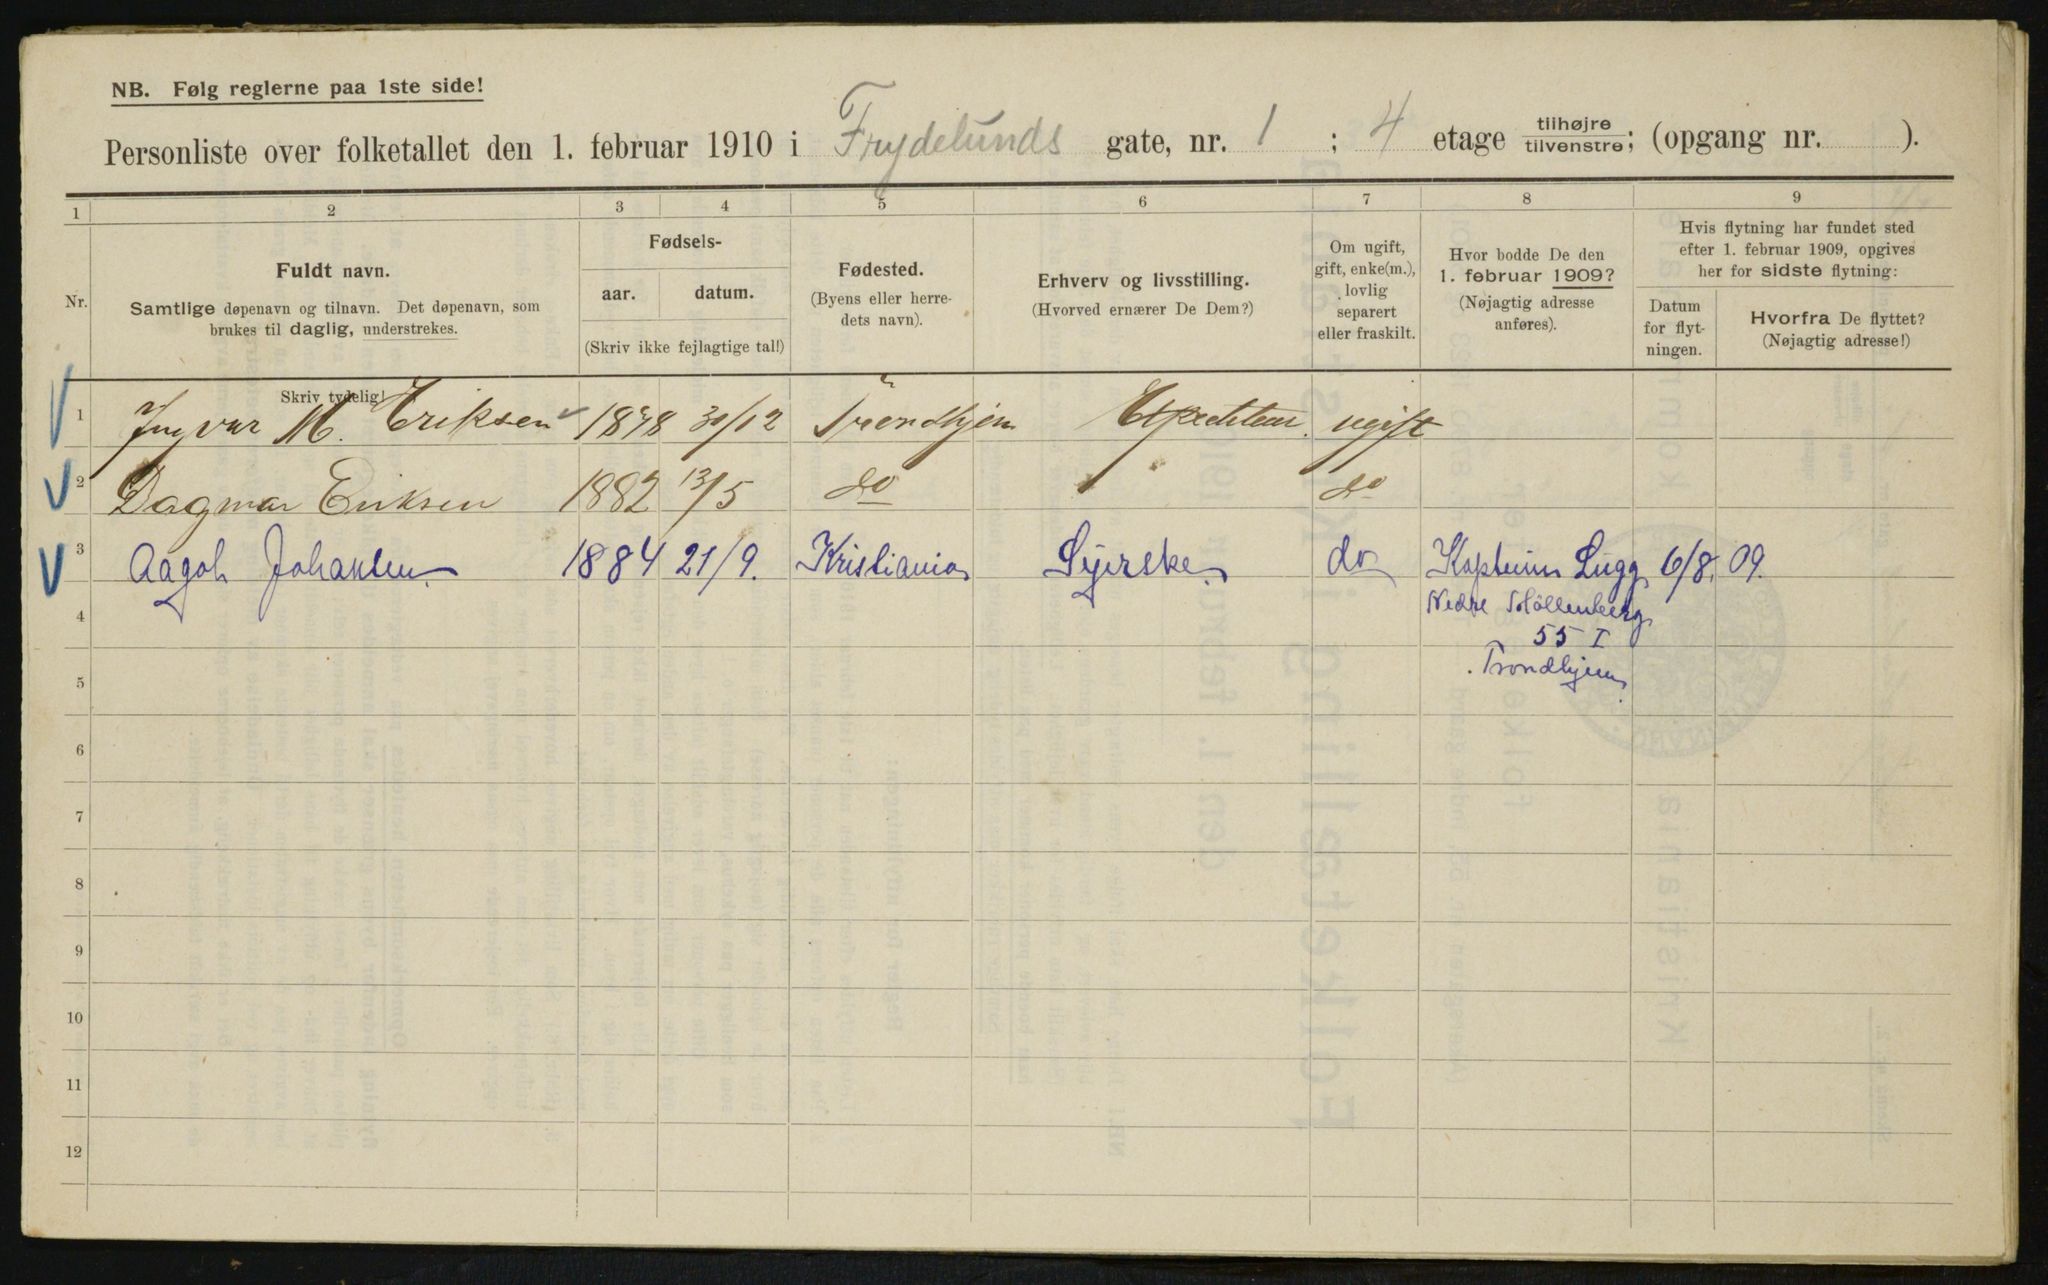 NB. Følg reglerne paa 1ste side!
Personliste over folketallet den 1. februar 1910 i Frydelunds gate, nr. 1 ; 4 etage tilhøjre tilvenstre; (opgang nr. ).
1 2 3 4 5 6 7 8 9
Nr.
Fuldt navn.
Samtlige døpenavn og tilnavn. Det døpenavn, som
brukes til daglig, understrekes.
Skriv tydelig!
Fødsels-
aar. datum.
(Skriv ikke fejlagtige tal!)
Fødested.
(Byens eller herre-
dets navn).
Erhverv og livsstilling.
(Hvorved ernærer De Dem?)
Om ugift,
gift, enke(m.),
lovlig
separert
eller fraskilt.
Hvor bodde De den
1. februar 1909?
(Nøjagtig adresse
anføres).
Hvis flytning har fundet sted
efter 1. februar 1909, opgives
her for sidste flytning:
Datum
for flyt-
ningen.
Hvorfra De flyttet?
(Nøjagtig adresse!)
1 Ingvar M. Eriksen 1878 30/12 Trondhjem Expediteur. ugift
2 Dagmar Eriksen 1882 13/5 do do
3 Aagot Johansen. 1884 21/9. Kristiania Syerske. do Kaptein Lugg 6/8. 09.
4 Nedre Möllenberg
55 I
5 Trondhjem.
6
7
8
9
10
11
12